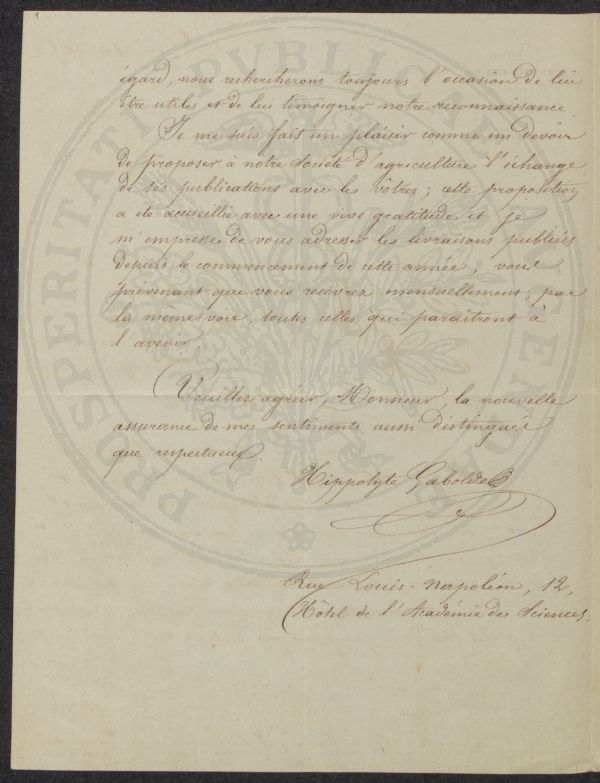 égard, nous rechercherons toujours l'occasion de lui
être utiles et de lui témoigner notre reconnaissance
Je me suis fait un plaisir comme un devoir
de proposer à notre Société d'agriculture l'échange
de ses publications avec les vôtres ; cette proposition
a été accueillie avec une vive gratitude et je
m'empresse de vous adresser les livraisons publiées
depuis le commencement de cette année, vous
prévenant que vous recevrez mensuellement, par
la même voie, toutes celles qui paraîtront à
l'avenir.
Veuillez agréer, Monsieur, la nouvelle
assurance de mes sentiments aussi distingués
que respectueux.
Hippolyte
Rue Louis-Napoléon, 12,
(Hôtel de l'Académie des Sciences.
PROSPERITATI PUBLICAE